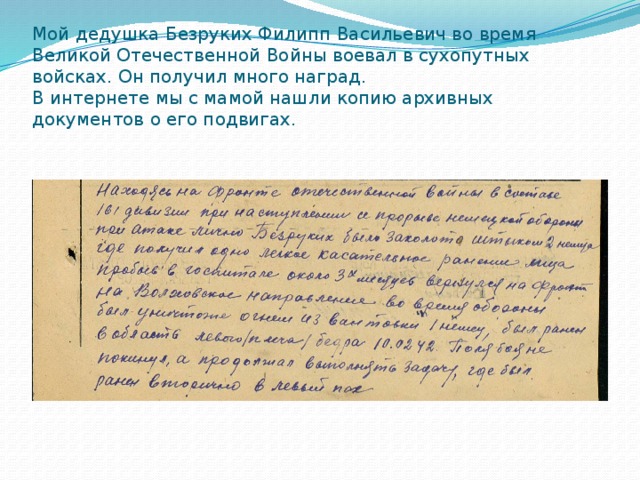 Мой дедушка Безруких Филипп Васильевич во время
Великой Отечественной Войны воевал в сухопутных
войсках. Он получил много наград.
В интернете мы с мамой нашли копию архивных
документов о его подвигах.
Находясь на фронте отечественной войны в составе
161 дивизии при наступлении и прорыве немецкой обороны
при атаке лично Безруких было заколото штыком 2 немца
где получил одно легкое касательное ранение лица
пробыв в госпитале около 3х месяцев вернулся на фронт
на Волховское направление во время обороны
был уничтожен огнем из винтовки 1 немец, был ранен
в область левого /плеча/ бедра 10.02.42. Поля боя не
покинул, а продолжал выполнять задачу, где был
ранен вторично в левый пах